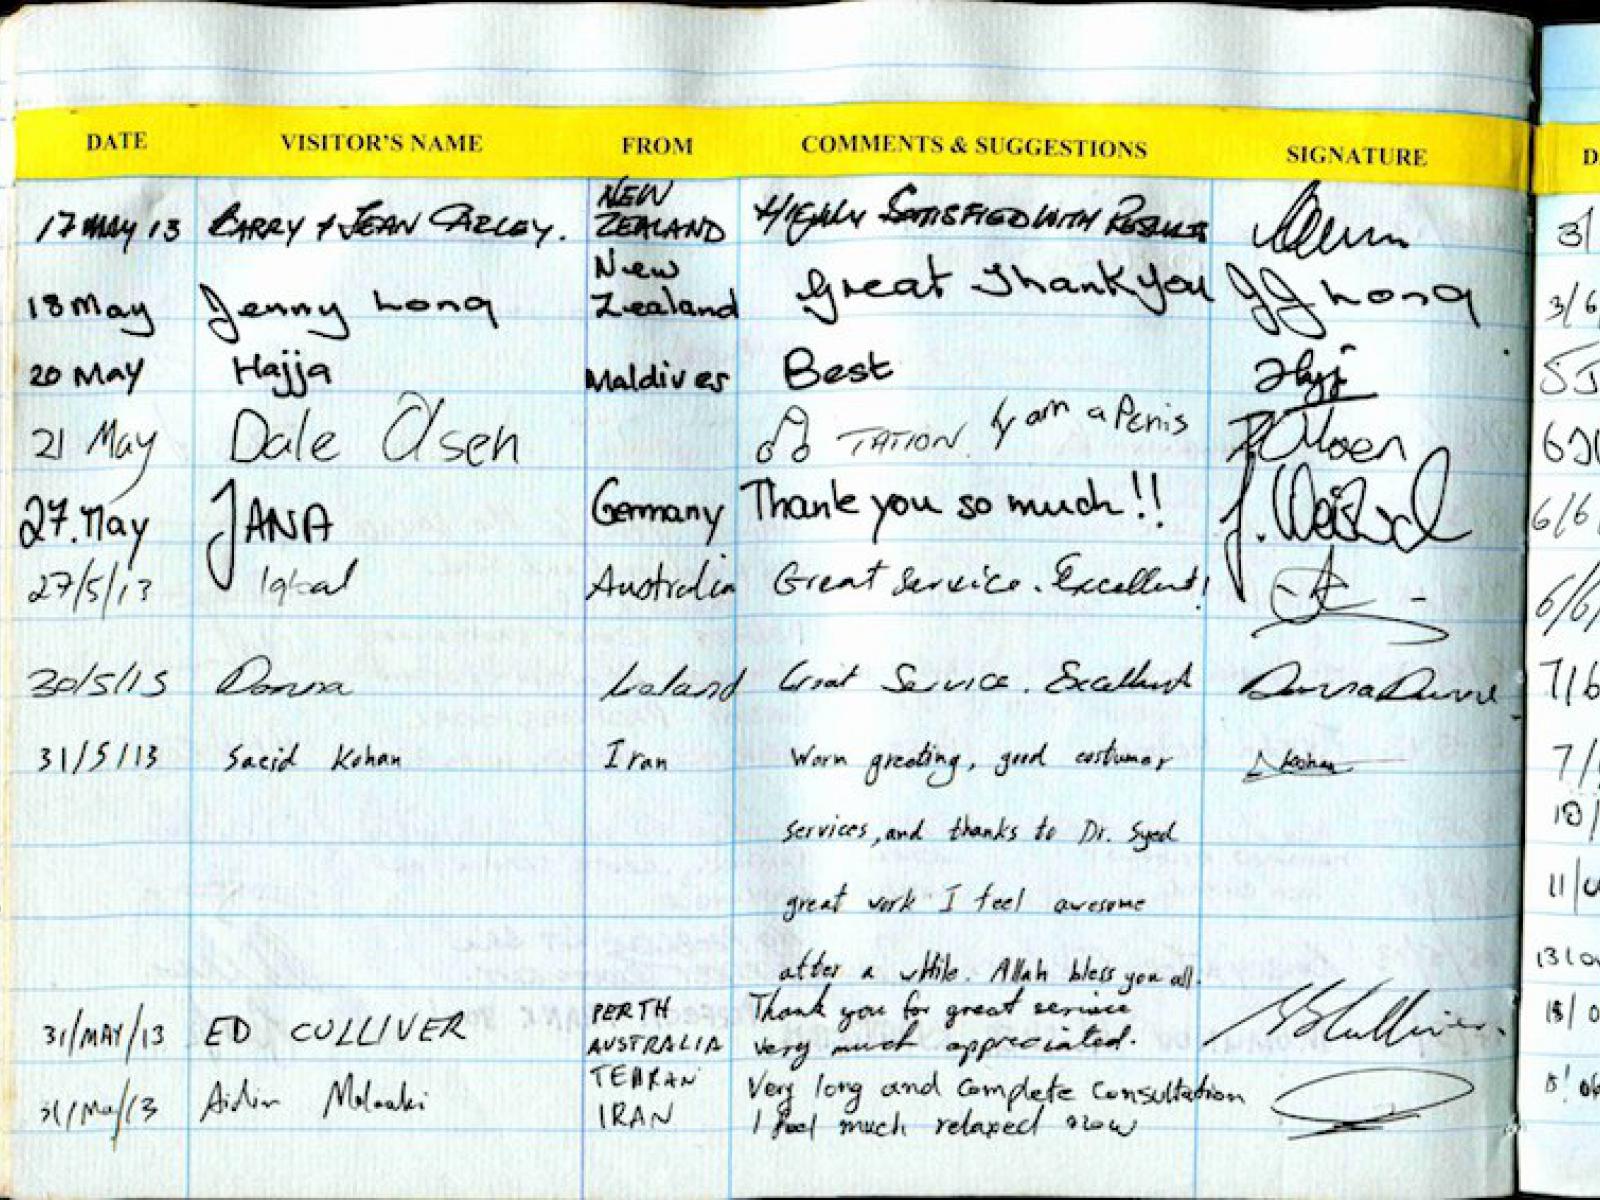 DATE VISITOR'S NAME FROM COMMENTS & SUGGESTIONS SIGNATURE
NEW
17 MAY 13 BARRY + JEAN CARLEY. ZEALAND HIGHLY SATISFIED WITH RESULTS
New
18 May Jenny Long Zealand Great Thank you JJ Long
20 May Hajja Maldives Best
21 May Dale Olsen TATION. I am a Penis D. Olsen
27. May JANA Germany Thank you so much!!
27/5/13 Iqbal Australia Great service. Excellent!
30/5/13 Donna Ireland Great Service. Excellent Donna Dunne
31/5/13 Saeid Kohan Iran Worm greeting, good costumer
services, and thanks to Dr. Syed
great work I feel awesome
after a while. Allah bless you all.
PERTH Thank you for great service
31/MAY/13 ED CULLIVER AUSTRALIA very much appreciated.
TEHRAN Very long and complete consultation
31/Ma/13 Aidin IRAN I feel much relaxed now
3/
3/6
6/6/
6/6/
7/6
7/
18/
11/
18/